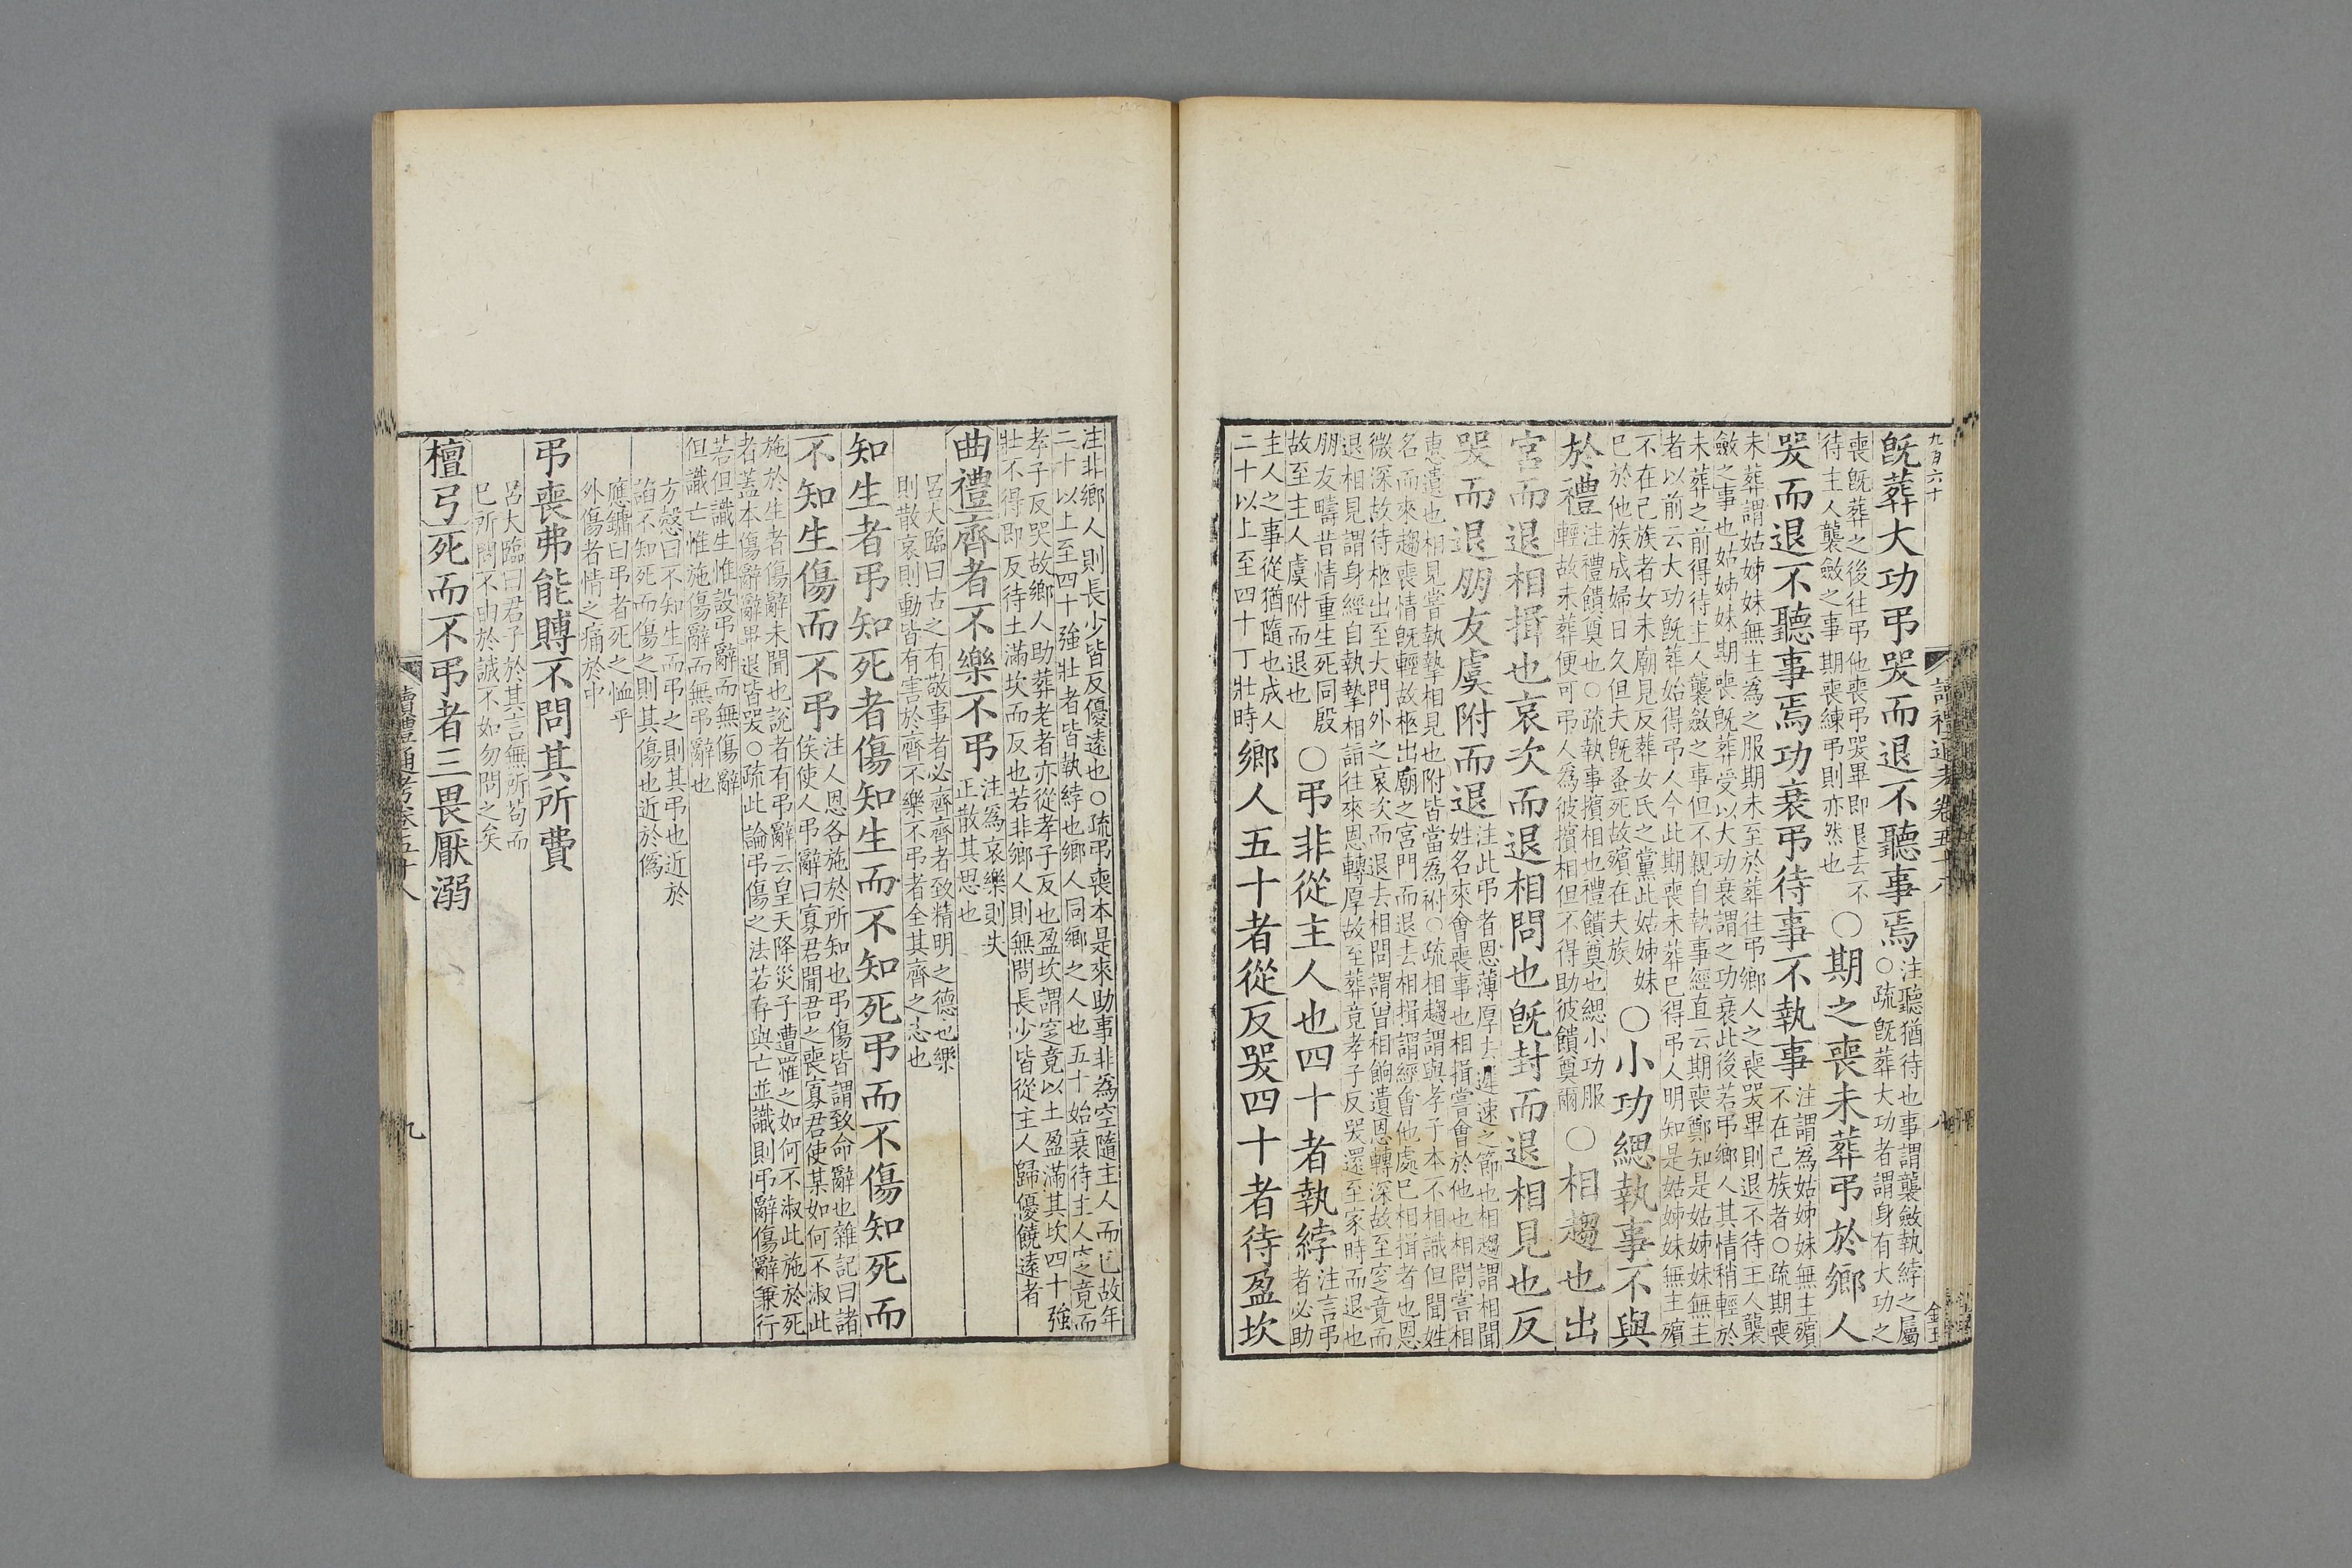 九百六十
旣葬大功弔哭而退不聽事焉注聽猶待也事謂襲斂執綍之屬○疏旣葬大功者謂身有大功之
喪旣葬之後往弔他喪弔哭畢即退去不待主人襲斂之事期喪練弔則亦然也○期之喪未葬弔於鄉人
哭而退不聽事焉功衰弔待事不執事注謂爲姑姊妹無主殯不在己族者○疏期喪
未葬謂姑姊妹無主爲之服期未至於葬往弔鄉人之喪哭畢則退不待主人襲
斂之事也姑姊妹期喪旣葬受以大功衰謂之功衰此後若弔鄉人其情稍輕於
未葬之前得待主人襲斂之事但不親自執事經直云期喪鄭知是姑姊妹無主
者以前云大功旣葬始得弔人今此期喪未葬已得弔人明知是姑姊妹無主殯
不在己族者女未廟見反葬女氏之黨此姑姊妹
已於他族成婦日久但夫旣蚤死故殯在夫族○小功緦執事不與
於禮注禮饋奠也○疏執事擯相也禮饋奠也緦小功服
輕故未葬便可弔人爲彼擯相但不得助彼饋奠爾○相趨也出
宮而退相揖也哀次而退相問也旣封而退相見也反
哭而退朋友虞附而退注此弔者恩薄厚去遲速之節也相趨謂相聞
姓名來會喪事也相揖嘗會於他也相問嘗相
惠遺也相見嘗執摯相見也附皆當爲祔○疏相趨謂與孝子本不相識但聞姓
名而來趨喪情旣輕故柩出廟之宮門而退去相揖謂經會他處已相揖者也恩
微深故待柩出至大門外之哀次而退去相問謂曾相餉遺恩轉深故至窆竟而
退相見謂身經自執摯相詣往來恩轉厚故至葬竟孝子反哭還至家時而退也
朋友疇昔情重生死同殷
故至主人虞附而退也○弔非從主人也四十者執綍注言弔者必助
主人之事從猶隨也成人
二十以上至四十丁壯時鄉人五十者從反哭四十者待盈坎
讀禮通考卷五十八
八
注非鄉人則長少皆反優遠也○疏弔喪本是來助事非爲空隨主人而已故年
二十以上至四十強壯者皆執綍也鄉人同鄉之人也五十始衰待主人窆之竟而
孝子反哭故鄉人助葬老者亦從孝子反也盈坎謂窆竟以土盈滿其坎四十強
壯不得即反待土滿坎而反也若非鄉人則無問長少皆從主人歸優饒遠者
曲禮齊者不樂不弔注爲哀樂則失正散其思也
呂大臨曰古之有敬事者必齊齊者致精明之德也樂
則散哀則動皆有害於齊不樂不弔者全其齊之志也
知生者弔知死者傷知生而不知死弔而不傷知死而
不知生傷而不弔注人恩各施於所知也弔傷皆謂致命辭也雜記曰諸
侯使人弔辭曰寡君聞君之喪寡君使某如何不淑此
施於生者傷辭未聞也說者有弔辭云皇天降災子遭罹之如何不淑此施於死
者蓋本傷辭辭畢退皆哭○疏此論弔傷之法若存與亡並識則弔辭傷辭兼行
若但識生惟設弔辭而無傷辭
但識亡惟施傷辭而無弔辭也
方慤曰不知生而弔之則其弔也近於
諂不知死而傷之則其傷也近於僞
應鏞曰弔者死之恤乎
外傷者情之痛於中
弔喪弗能賻不問其所費
呂大臨曰君子於其言無所苟而
已所問不由於誠不如勿問之矣
檀弓死而不弔者三畏厭溺
讀禮通考卷五十八
九